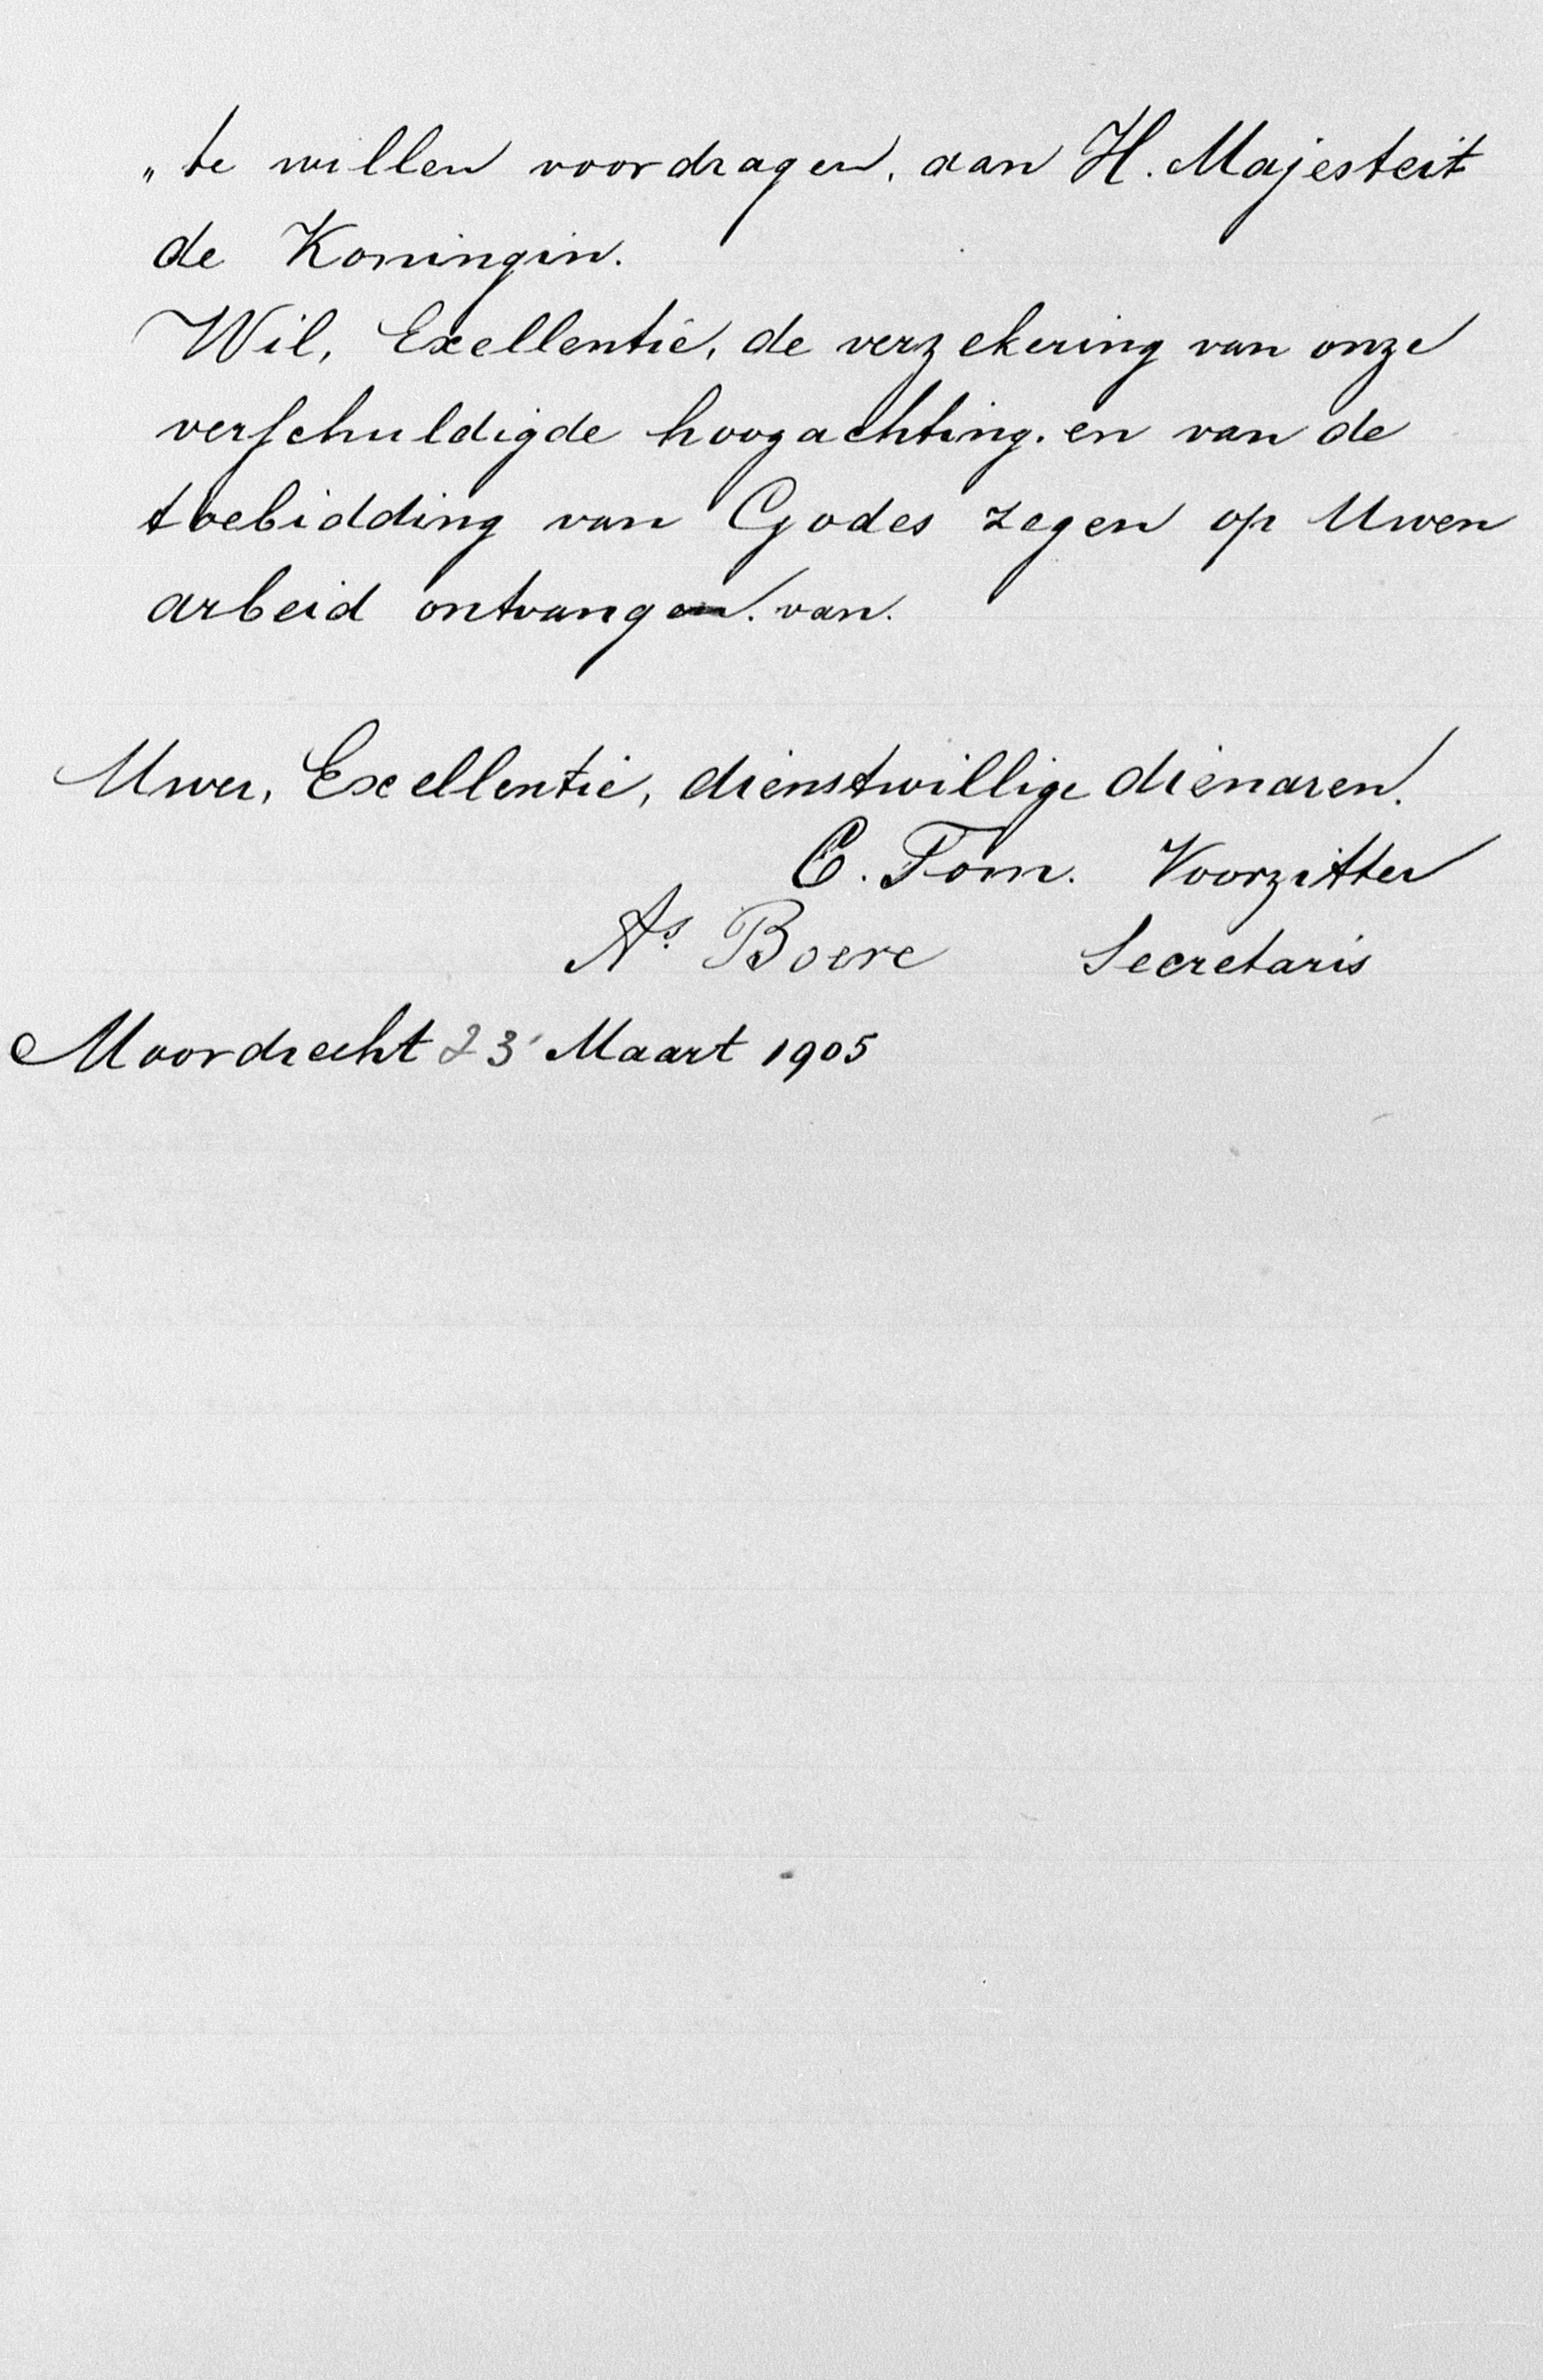 „te willen voordragen, aan H. Majesteit
de Koningin.
Wil, Exellentie, de verzekering van onze
verschuldigde hoogachting. en van de
toebidding van Godes zegen op Uwen
arbeid ontvangen. van.
Uwer, Exellentie, dienstwillige dienaren.
C. Tom. Voorzitter
As. Boere Secretaris
Moordrecht 23 Maart 1905